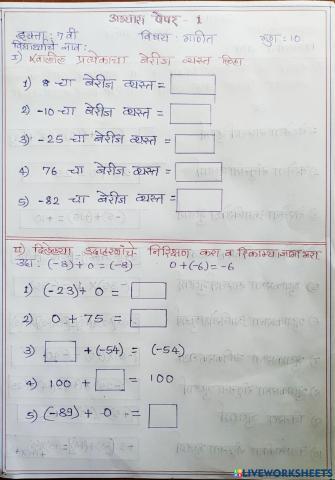 अभ्यास पेपर - 1
इयत्ता : 7 वी विषय - गणित गुण : 10
विद्यार्थ्याचे नाव :
I) खालील प्रत्येकाचा बेरीज व्यस्त लिहा
1) 8 - चा बेरीज व्यस्त =
2) -10 - चा बेरीज व्यस्त =
3) -25 - चा बेरीज व्यस्त =
4) 76 - चा बेरीज व्यस्त =
5) -82 - चा बेरीज व्यस्त =
II) दिलेल्या उदाहरणांचे निरिक्षण करा व रिकाम्या जागा भरा
उदा : (-8) + 0 = (-8) 0 + (-6) = -6
1) (-23) + 0 =
2) 0 + 75 =
3) + (-54) = (-54)
4) 100 + = 100
5) (-89) + 0 =
LIVEWORKSHEETS